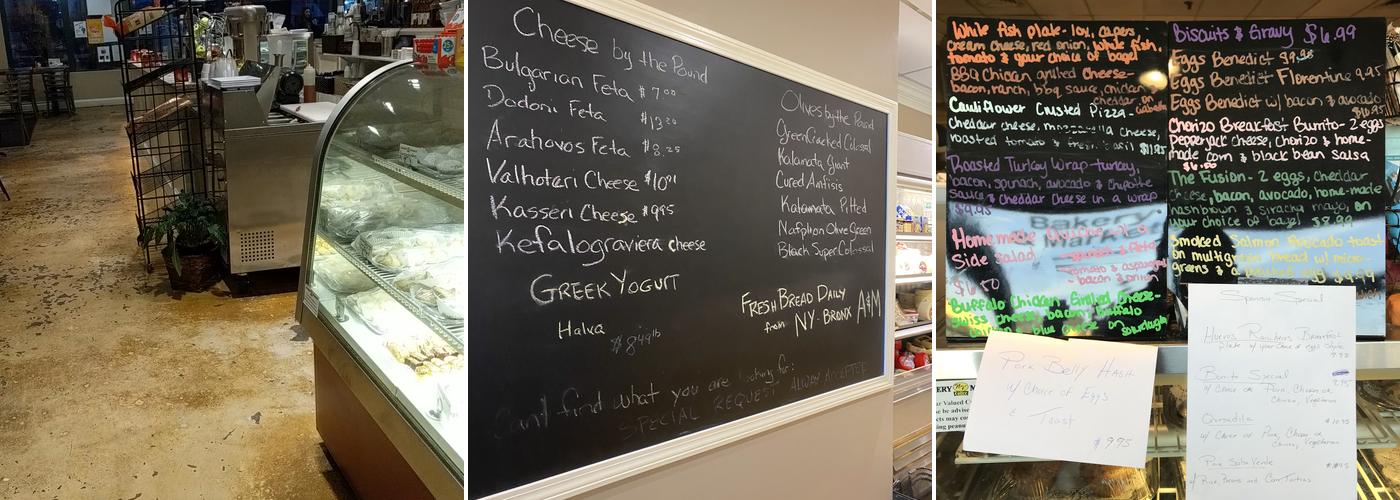 Cheese by the Pound
Bulgarian Feta $7.00
Dodoni Feta $13.20
Arahovos Feta $8.25
Valhotari Cheese $10
Kasseri Cheese $9.95
Kefalograviera cheese
GREEK YOGURT
Halva
$8.49 lb
Olives by the Pound
Green Cracked Colossal
Kalamata Giant
Cured Amfisis
Kalamata Pitted
Nafplion Olive Green
Black Super Colossal
FRESH BREAD DAILY
from NY-BRONX A&M
Can't find what you are looking for:
SPECIAL REQUEST ALWAY ACCEPTED
White fish plate - lox, capers,
cream cheese, red onion, white fish,
tomato & your choice of bagel
BBQ Chicken grilled cheese-
bacon, ranch, bbq sauce, chicken
cheddar on
Cauliflower Crusted Pizza-
cheddar cheese, mozzarella cheese,
roasted tomato & fresh basil $11.95
Roasted Turkey Wrap-turkey,
bacon, spinach, avocado & chipotle
sauce & cheddar cheese in a wrap
$9.95
Homemade Quiche w/ a
Side salad
- spinach & feta
- tomato & asparagus
- bacon & onion
$6.50
Buffalo Chicken Grilled Cheese-
swiss cheese, bacon, buffalo
chicken, blue cheese on sourdough
Biscuits & Gravy $6.99
Eggs Benedict $9.95
Eggs Benedict Florentine 9.95
Eggs Benedict w/ bacon & avocado
$10.95
Chorizo Breakfast Burrito- 2 eggs
Pepperjack cheese, chorizo & home-
made corn & black bean salsa
The Fusion- 2 eggs, cheddar
cheese, bacon, avocado, home-made
hashbrown & siracha mayo, on
your choice of bagel $8.99
Smoked Salmon Avocado toast
on multigrain bread w/ micro-
greens & a poached egg $9.99
Pork Belly Hash
w/ Choice of Eggs
& Toast
$9.95
Spanish Special
Huevos Rancheros Breakfast
plate w/ your choice of eggs style
Burrito Special
w/ choice of Pork, Chicken or
Chorizo, Vegetarian
Quesadilla $10.95
w/ Choice of Pork, Chicken or
Chorizo, Vegetarian
Pork Salsa Verde
w/ Rice, Beans and Corn Tortillas